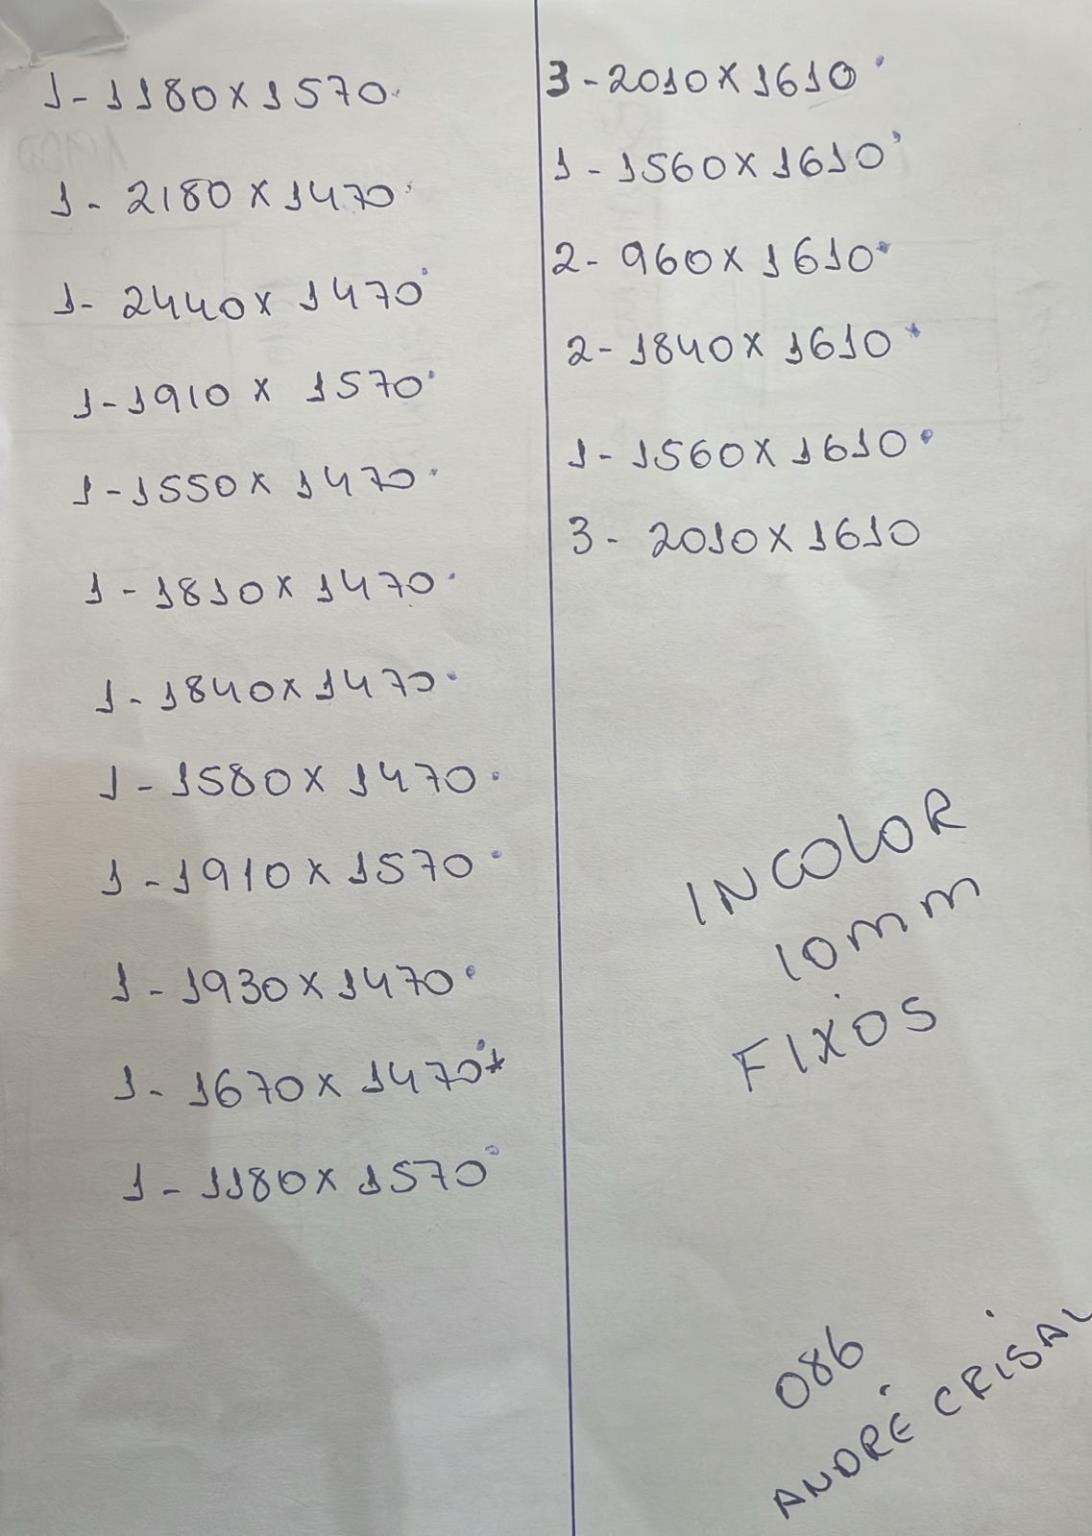 1-1180x1570
1-2180x1470
1-2440x1470
1-1910x1570
1-1550x1470
1-1810x1470
1-1840x1470
1-1580x1470
1-1910x1570
1-1930x1470
1-1670x1470*
1-1180x1570
3-2010x1610
1-1560x1610
2-960x1610
2-1840x1610
1-1560x1610
3-2010x1610
INCOLOR
10mm
FIXOS
086
ANDRÉ CRISAL